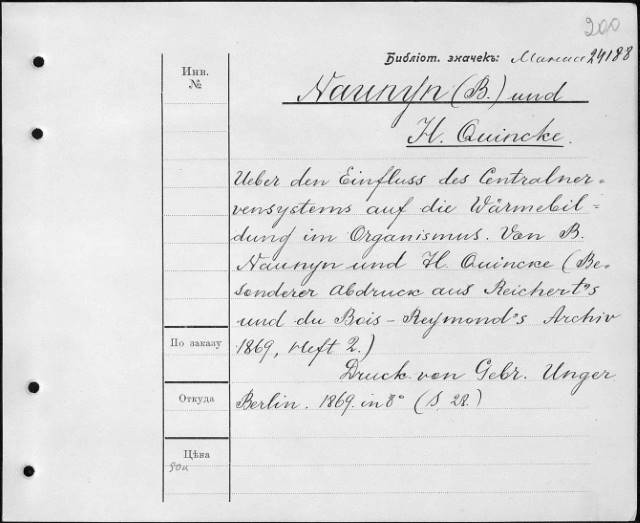 200
Библіот. значекъ: 24188
Инв.
№
Naunyn (B.) und
H. Quincke.
Ueber den Einfluss des Centralner-
vensystems auf die Wärmebil=
dung im Organismus. Von B.
Naunyn und H. Quincke (Be-
sonderer Abdruck aus Reichert's
und du Bois-Reymond's Archiv
По заказу
1869, Heft 2.)
Druck von Gebr. Unger
Откуда
Berlin. 1869. in 8° (S. 28.)
Цѣна